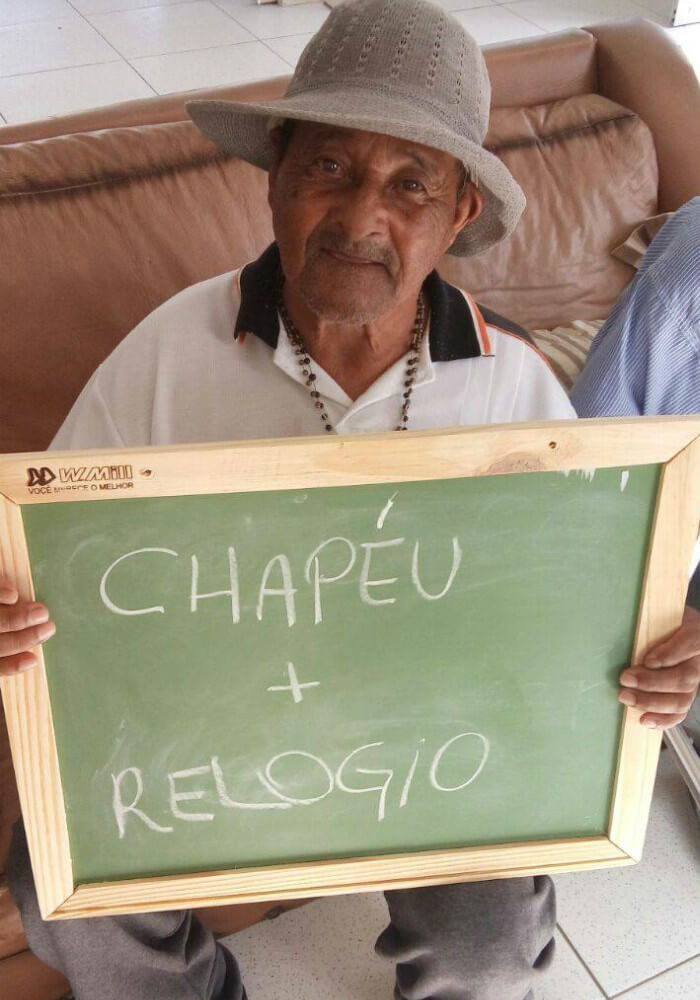 W.Mill
VOCÊ MERECE O MELHOR
CHAPÉU
+
RELOGIO